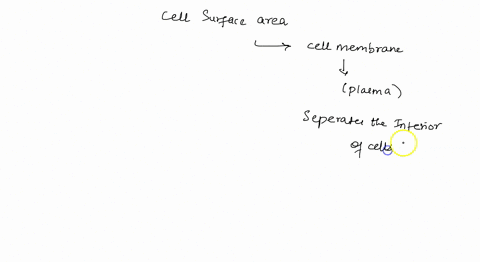 Cell Surface area
cell membrane
(plasma)
Seperates the Interior
of cells